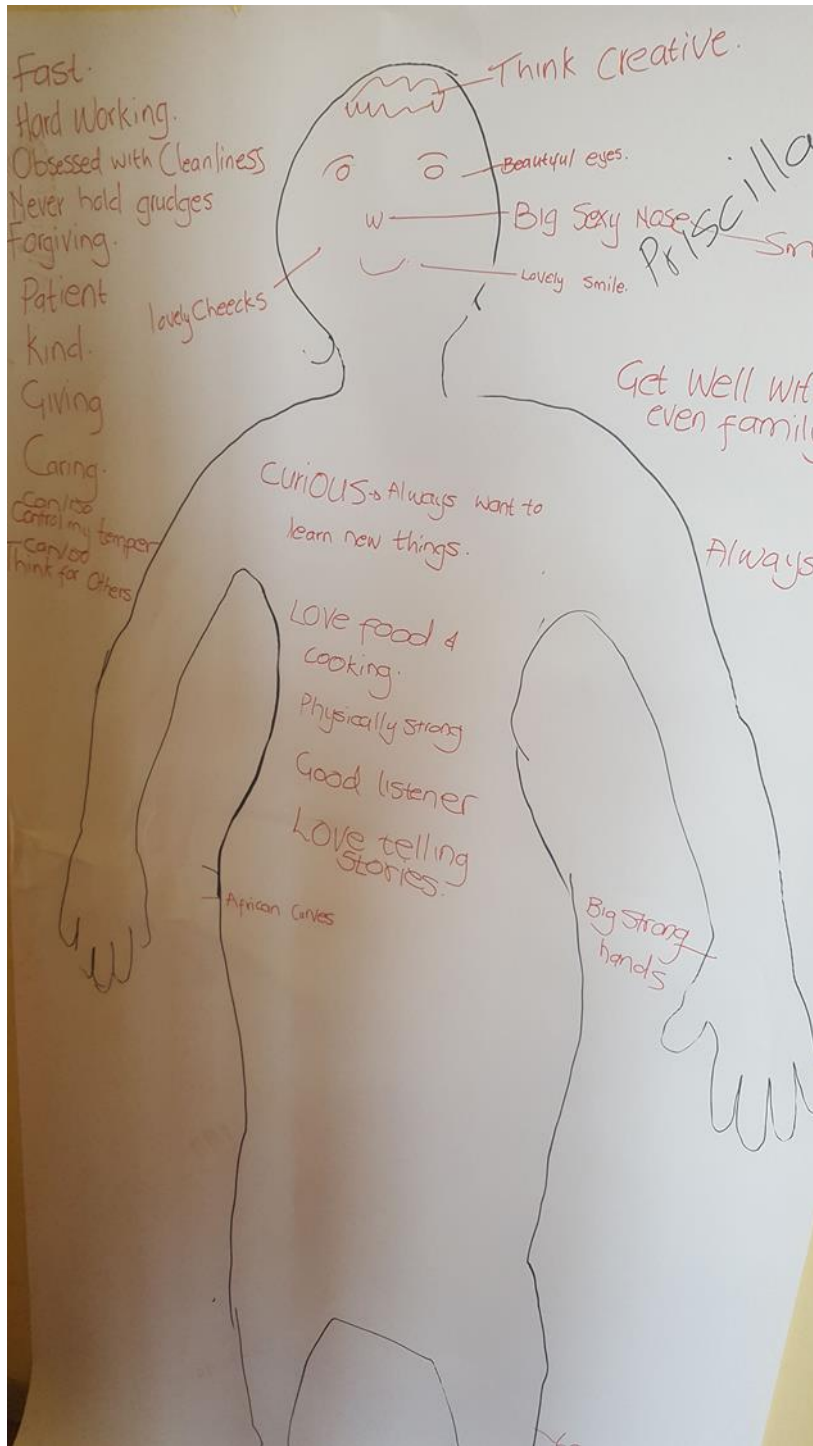 Fast.
Hard Working.
Obsessed with Cleanliness
Never hold grudges
Forgiving.
Patient
Kind.
Giving
Caring.
Control my temper
Think for Others
Think Creative.
Beautiful eyes.
Big Sexy Nose
Priscilla
Lovely Smile.
lovely Cheecks
Get Well
even family
Always
Curious → Always want to
learn new things.
Love food &
cooking.
Physically strong
Good listener
Love telling
stories.
African Curves
Big Strong
hands